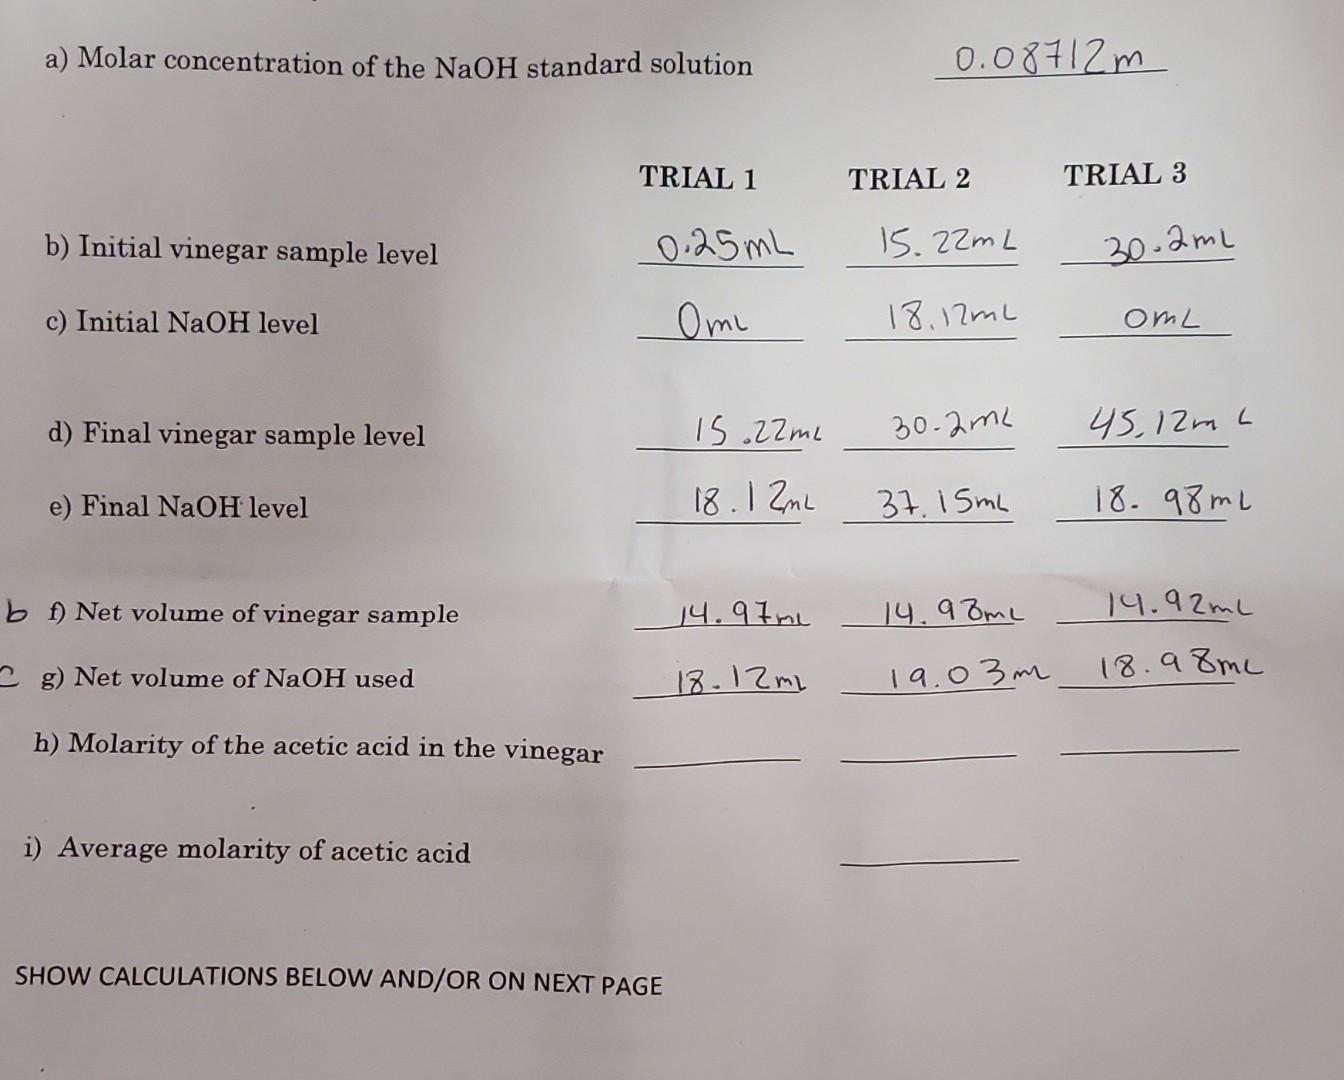 a) Molar concentration of the NaOH standard solution 0.08712m
TRIAL 1 TRIAL 2 TRIAL 3
b) Initial vinegar sample level 0.25mL 15.22mL 30.2mL
c) Initial NaOH level 0mL 18.12mL 0mL
d) Final vinegar sample level 15.22mL 30.2mL 45.12mL
e) Final NaOH level 18.12mL 37.15mL 18.98mL
b f) Net volume of vinegar sample 14.97mL 14.98mL 14.92mL
c g) Net volume of NaOH used 18.12mL 19.03m 18.98mL
h) Molarity of the acetic acid in the vinegar
i) Average molarity of acetic acid
SHOW CALCULATIONS BELOW AND/OR ON NEXT PAGE